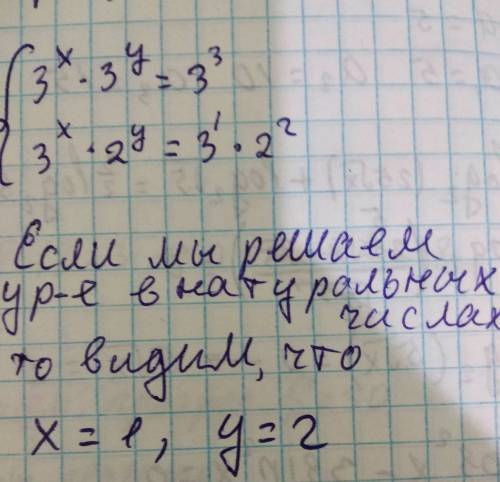 3^x · 3^y = 3^3
3^x · 2^y = 3^1 · 2^2
Если мы решаем
ур-е в натуральных
числах
то видим, что
x = 1, y = 2